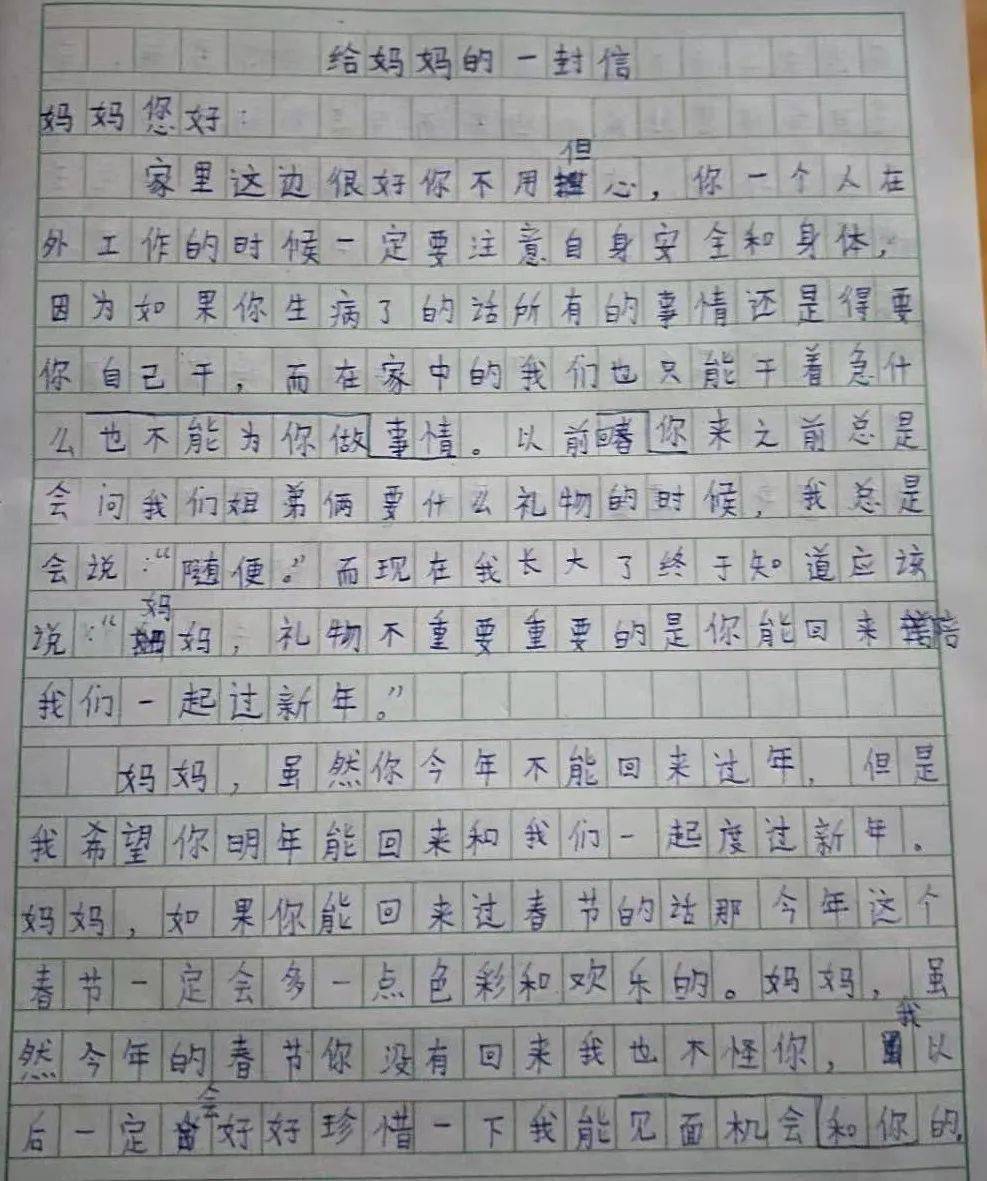 给妈妈的一封信
妈妈您好：
家里这边很好你不用但心，你一个人在
外工作的时候一定要注意自身安全和身体，
因为如果你生病了的话所有的事情还是得要
你自己干，而在家中的我们也只能干着急什
么也不能为你做事情。以前你来之前总是
会问我们姐弟俩要什么礼物的时候，我总是
会说：“随便。”而现在我长大了终于知道应该
说：“妈妈，礼物不重要重要的是你能回来陪
我们一起过新年。”
妈妈，虽然你今年不能回来过年，但是
我希望你明年能回来和我们一起度过新年。
妈妈，如果你能回来过春节的话那今年这个
春节一定会多一点色彩和欢乐的。妈妈，虽
然今年的春节你没有回来我也不怪你，我以
后一定会好好珍惜一下我能见面机会和你的，